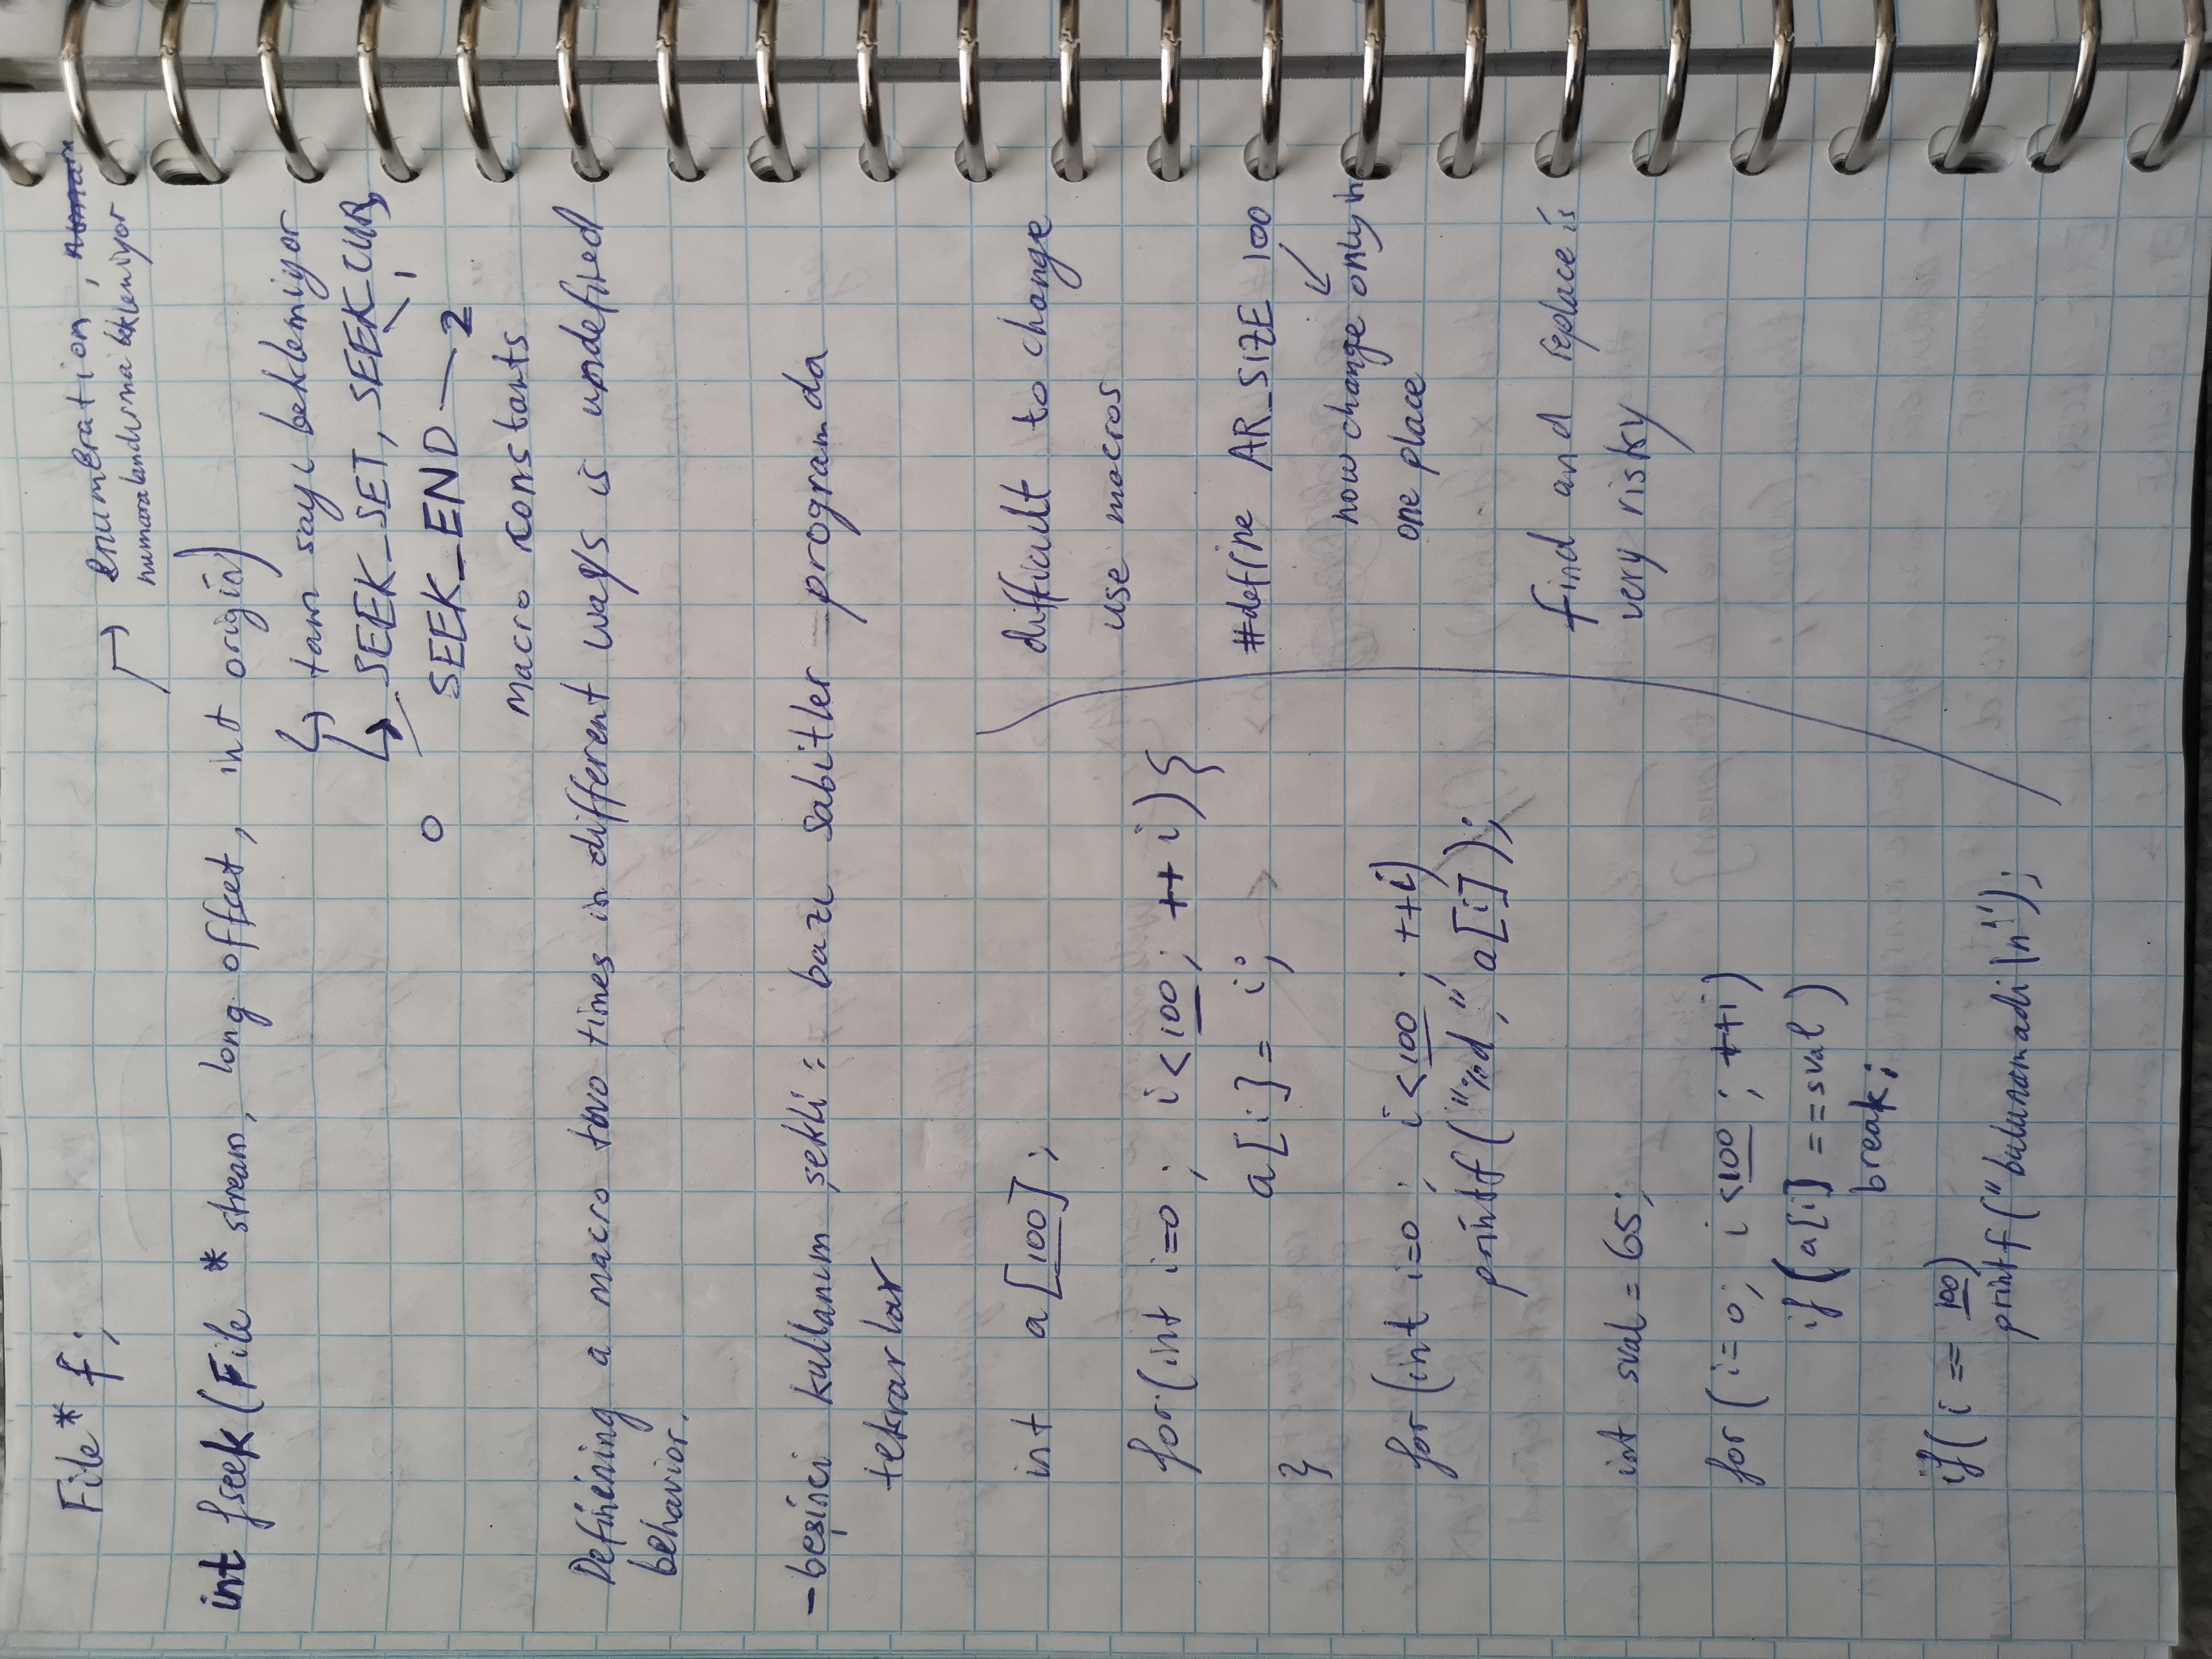 File* f;
enumeration,
numaralandırma beklemiyor
int fseek(File * stream, long offset, int origin)
tam sayı beklemiyor
SEEK_SET, SEEK_CUR,
1
0
SEEK_END — 2
macro constants
Definining a macro two times in different ways is undefined
behavior.
-beşinci kullanım şekli: bazı sabitler programda
tekrarlar
int a[100];
for(int i=0; i<100; ++i){
a[i]= i;
}
for(int i=0; i<100; ++i)
printf("%d," a[i]);
int sval = 65;
for (i=0; i<100; ++i)
if(a[i] ==sval)
break;
if(i == 100)
printf("bulunamadi\n");
difficult to change
use macros
#define AR_SIZE 100
now change only in
one place
find and replace is
very risky